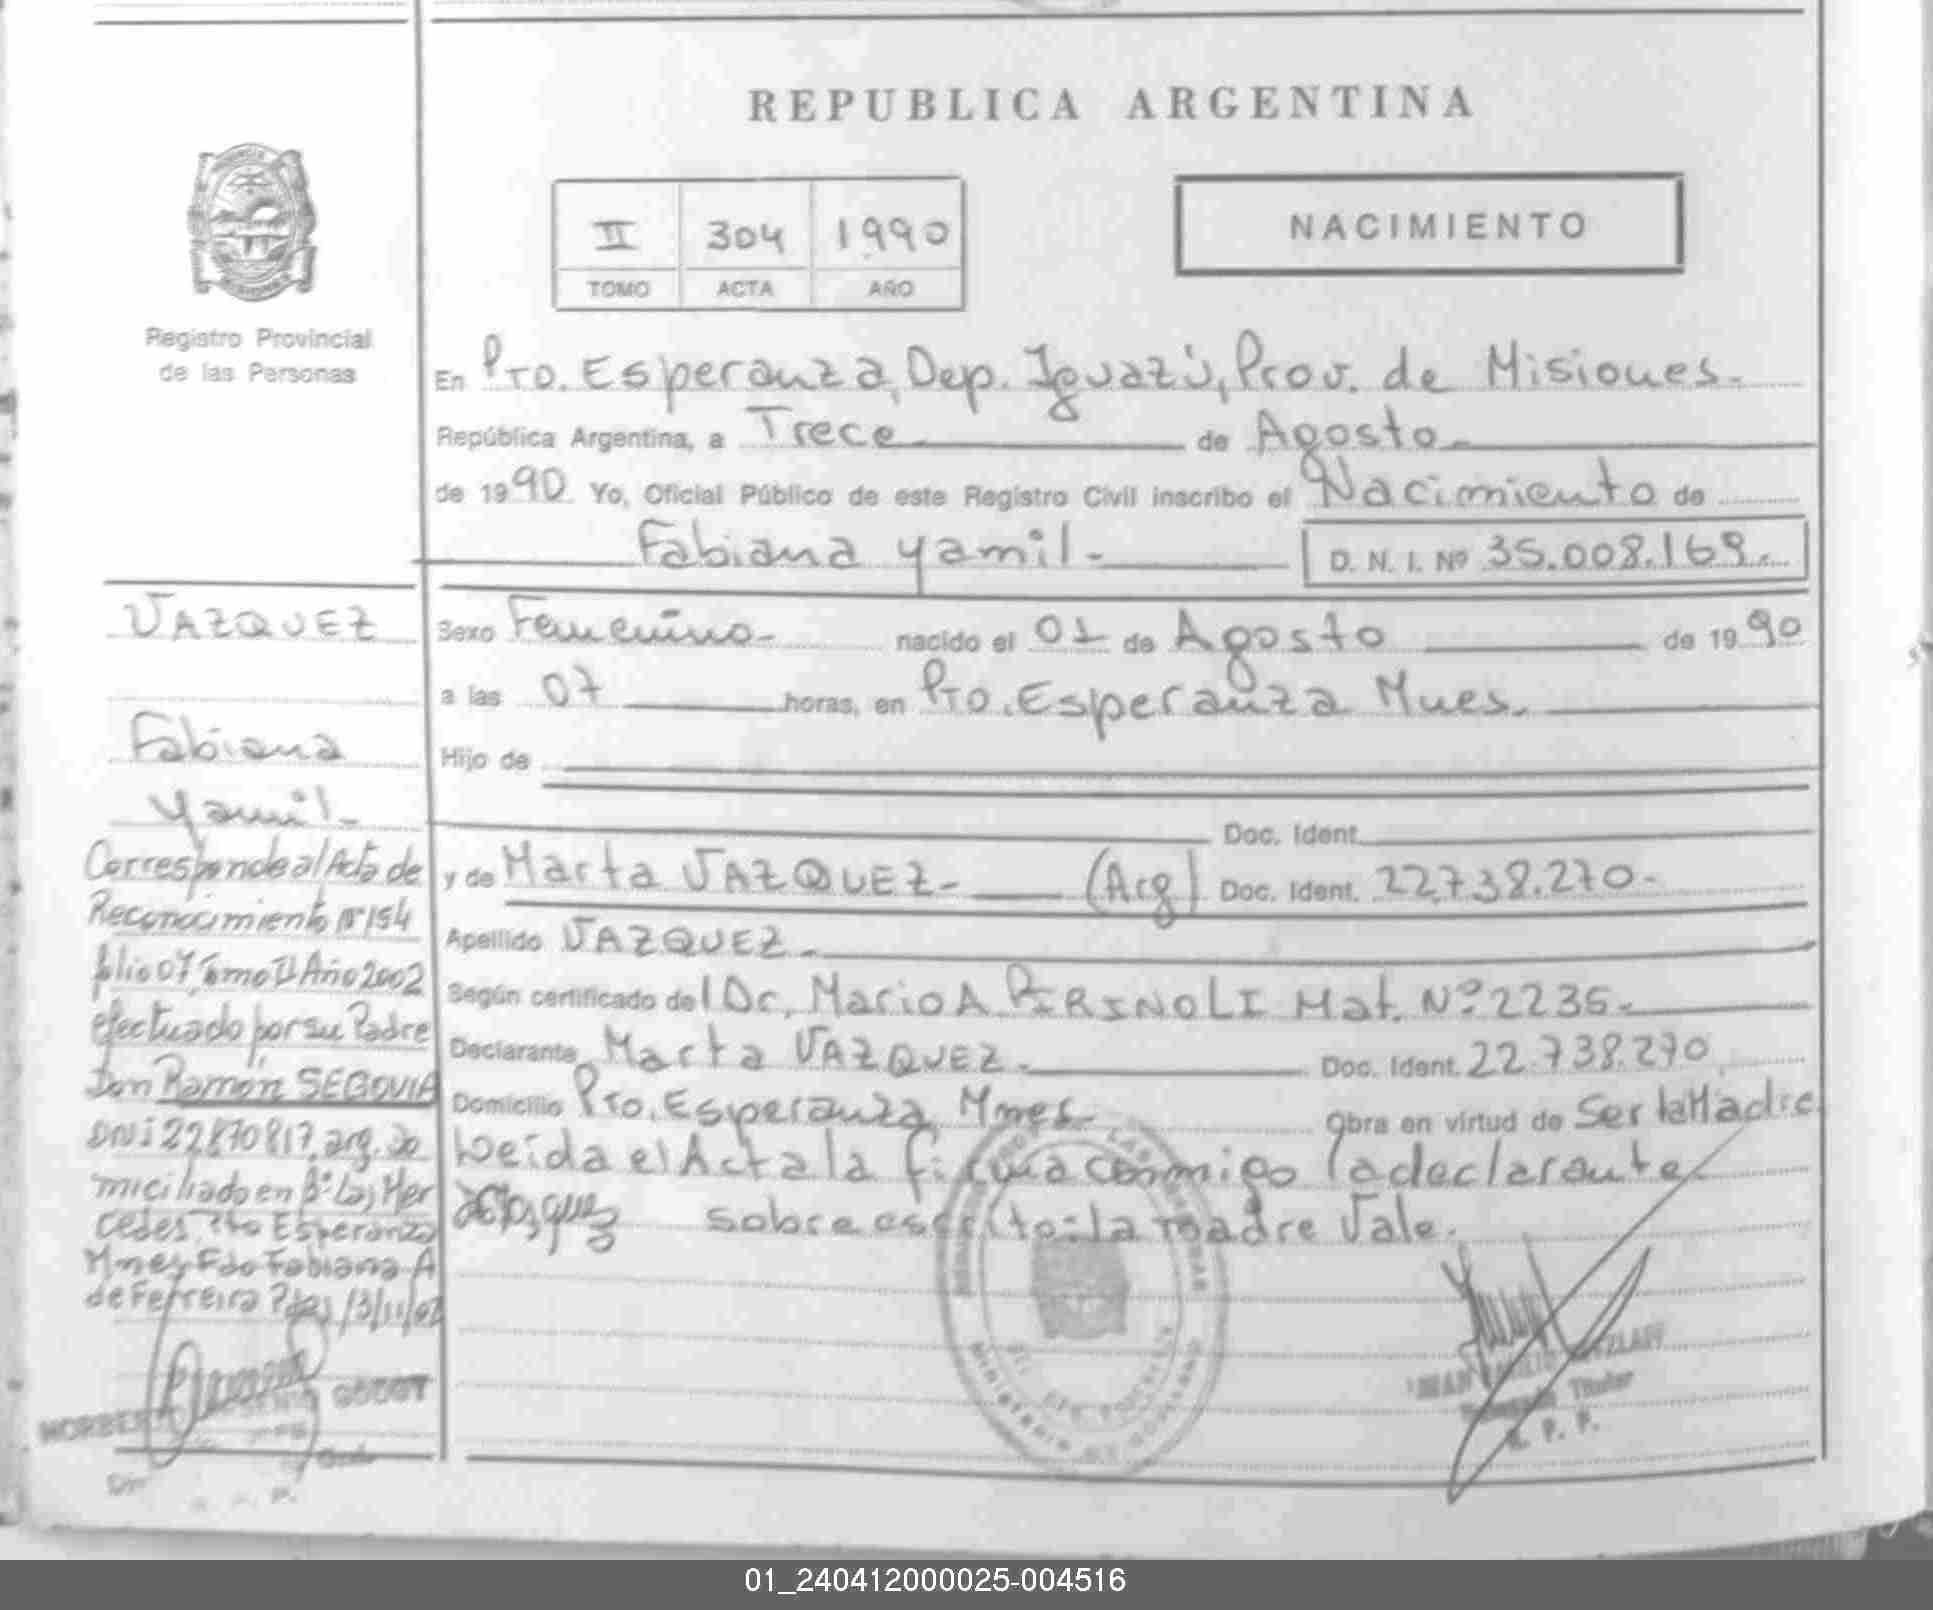 REPUBLICA ARGENTINA
II 304 1990
TOMO ACTA AÑO
NACIMIENTO
Registro Provincial
de las Personas
En Pto. Esperanza, Dep. Iguazú, Prov. de Misiones.
República Argentina, a Trece de Agosto
de 1990 Yo, Oficial Público de este Registro Civil inscribo el Nacimiento de
Fabiana Yamil- D. N. I. Nº 35.008.169
VAZQUEZ
Fabiana
Yamil-
Sexo Femenino- nacido el 01 de Agosto de 1990
a las 07 horas, en Pto. Esperanza Mnes.
Hijo de
Doc. Ident.
y de Marta VAZQUEZ- (Arg) Doc. Ident. 22.738.270-
Apellido VAZQUEZ-
Según certificado del Dr. Mario A. PIRINOLI Mat. Nº 2236-
Declarante Marta VAZQUEZ. Doc. Ident. 22.738.270
Domicilio Pto. Esperanza Mnes- Obra en virtud de Ser la Madre
Leida el Acta la firma conmigo la declarante
sobre escrito: la madre Vale.
Corresponde al Acta de
Reconocimiento Nº 154
folio 07 Tomo II Año 2002
efectuado por su Padre
Don Ramón SEGOVIA
DNI 22870817, arg. do
miciliado en Bº Las Mer
cedes, Pto Esperanza
Mnes Fdo Fabiana A
de Ferreira 13/11/02
GODOY
Titular
R. P. P.
01_240412000025-004516